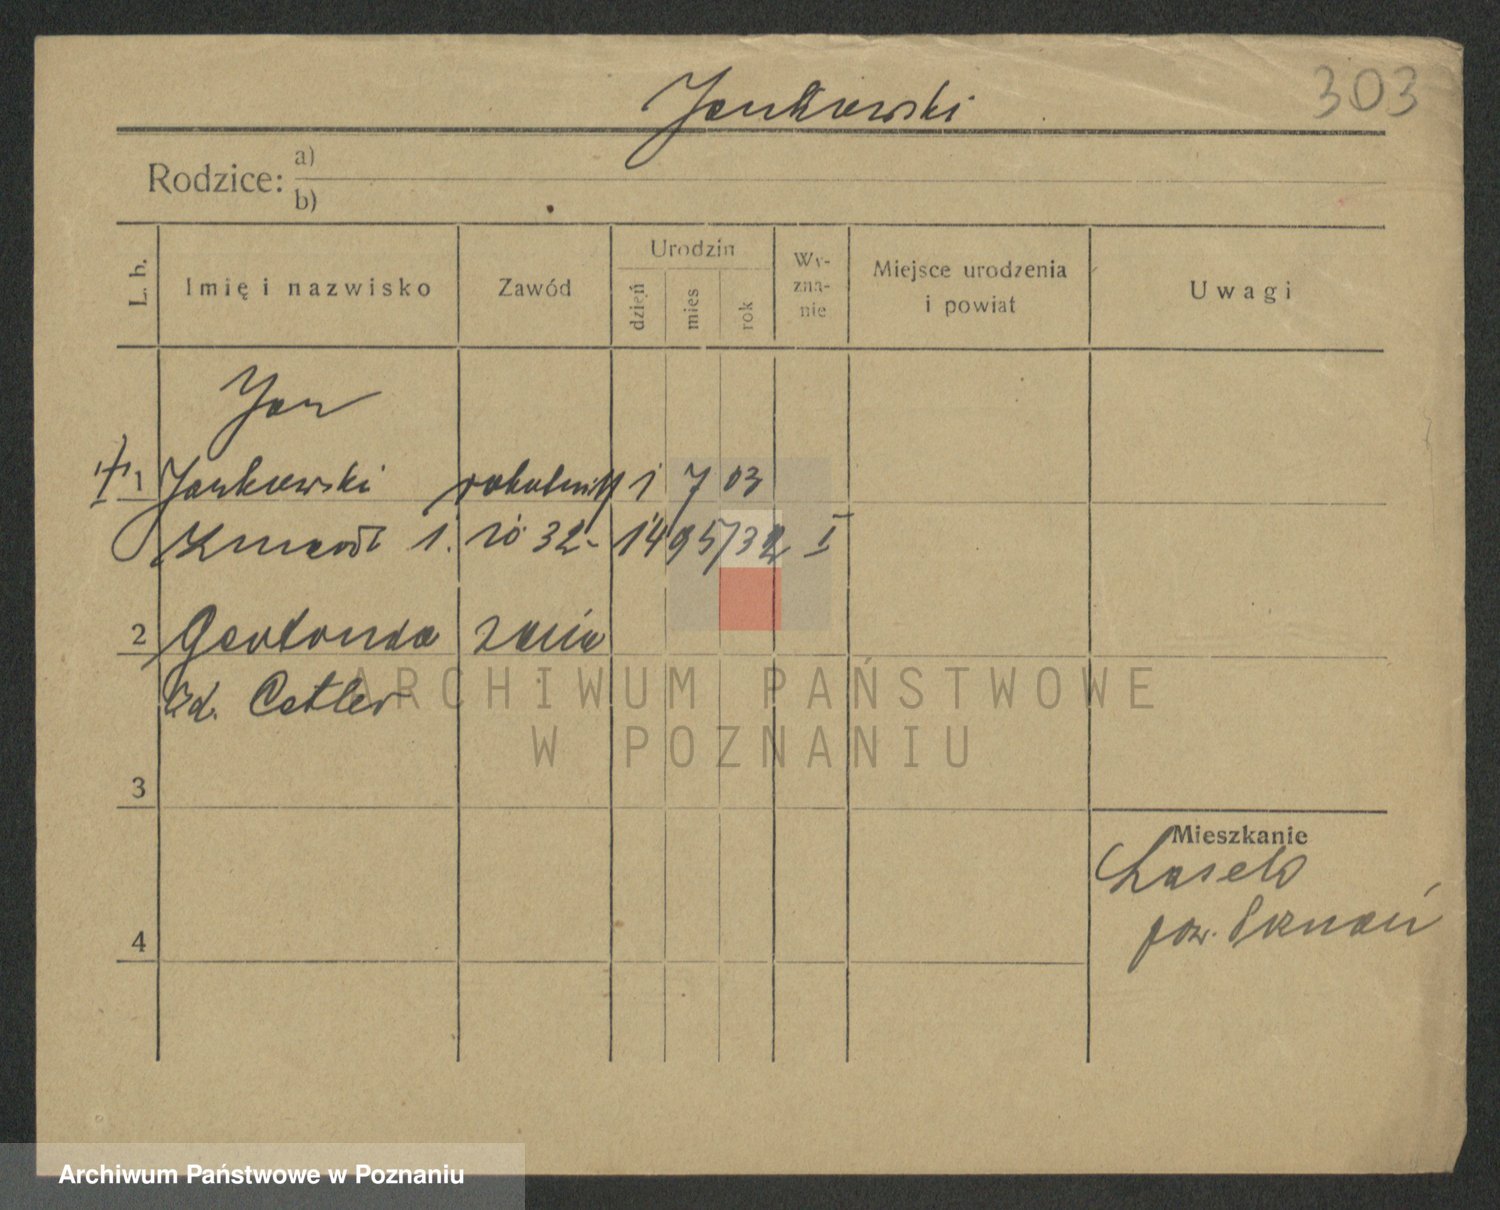 303
Jankowski
Rodzice:
a)
b)
L. b.
Imię i nazwisko
Zawód
Urodzin
dzień
mies
rok
Wy-
zna-
nie
Miejsce urodzenia
i powiat
Uwagi
Jan
1 Jankowski robotnik 1 7 03
zmarł 1. 10 32 - 1495/32 I
2
żona
Cetler
3
4
Mieszkanie
Lasek
pow. Poznań
ARCHIWUM PAŃSTWOWE
W POZNANIU
Archiwum Państwowe w Poznaniu